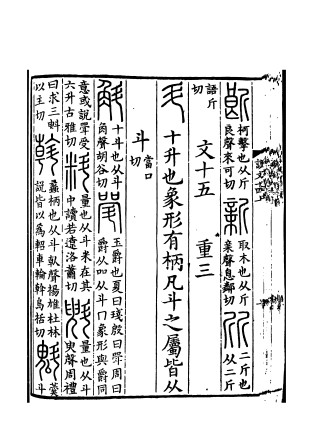 𣂳 柯擊也从斤良聲來可切 新 取木也从斤亲聲息鄰切 斦 二斤也从二斤
語斤切 文十五 重三
斗 十升也象形有柄凡斗之屬皆从
斗 當口切
斛 十斗也从斗角聲胡谷切 斝 玉爵也夏曰琖殷曰斝周曰爵从吅从斗冂象形與爵同
意或說斝受六升古雅切 料 量也从斗米在其中讀若遼洛蕭切 斞 量也从斗臾聲周禮
曰求三斞以主切 斡 蠡柄也从斗倝聲揚雄杜林說皆以爲軺車輪斡烏括切 魁 斗